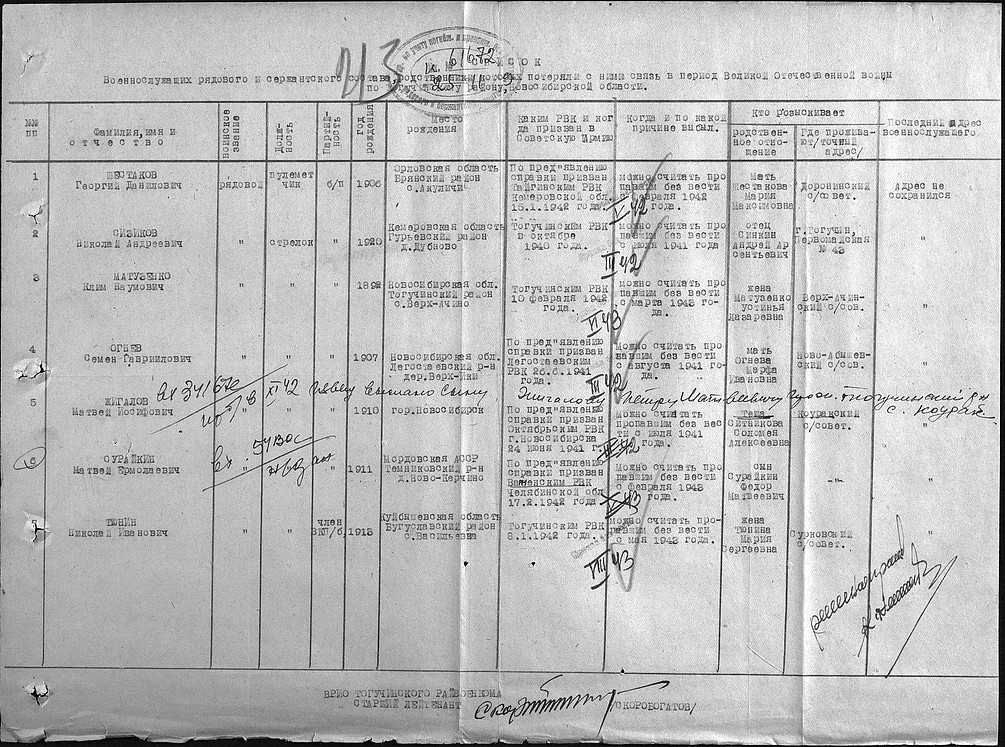 СПИСОК
Военнослужащих рядового и сержантского состава, родственники которых потеряли с ними связь в период Великой Отечественной войны
по Тогучинскому району, Новосибирской области.
№№ пп
Фамилия, имя и отчество
воинское звание
Долж-ность
Партий-ность
год рождения
Место рождения
Каким РВК и ког да призван в Советскую Армию
Когда и по какой причине выбыл.
Кто розыскивает
родствен-ное отно-шение
Где прожива-ют/точный адрес/
Последний адрес военнослужащего.
1
ШЕСТАКОВ
Георгий Данилович
рядовой
пулемет чик
б/п
1906
Орловская область
Брянский район
с.Акуличи
По пред"явлению
справки призван
Тайгинским РВК
Кемеровской обл.
15.1.1942 года.
можно считать про
павшим без вести
с февраля 1942
года.
IV 42
Мать
Шестакова
Мария
Максимовна
Доронинский
с/совет.
Адрес не
сохранился
2
СИЗИКОВ
Николай Андреевич
"
стрелок
"
1920
Кемеровская область
Гурьевский район
д.Дубново
Тогучинским РВК
в октябре
1940 года.
можно считать про
павшим без вести
с июля 1941 года
III 42
отец
Андрей Ар
сентьевич
г.Тогучин,
Первомайская
№ 43
"
3
МАТУЗЕНКО
Клим Наумович
"
"
"
1892
Новосибирская обл.
Тогучинский район
с.Верх-Ачино
Тогучинским РВК
10 февраля 1942
года.
можно считать про
павшим без вести
с марта 1943 го-
да.
VI 43
жена
Матузенко
Устинья
Лазаревна
Верх-Ачин-
ский с/сов.
"
4
ОГНЕВ
Семен Гавриилович
"
"
"
1907
Новосибирская обл.
Легостаевский р-н
дер.Верх-Ики
По пред"явлению
справки призван
Легостаевским
РВК 26.6.1941
года.
Можно считать про
павшим без вести
с августа 1941 го-
да.
III 42
мать
Огнева
Марфа
Ивановна
Ново-Абышев-
ский с/сов.
"
5
ЖИГАЛОВ
Матвей Иосифович
"
"
"
1910
гор.Новосибирск
По пред"явлению
справки призван
Октябрьским РВК
г.Новосибирска
24 июня 1941 г.
можно считать
пропавшим без вес
ти с июля 1941
года.
Теща
Ситникова
Соломея
Алексеевна
Коуракский
с/совет.
"
6
СУРАЙКИН
Матвей Ермолаевич
"
"
"
1911
Мордовская АССР
Темниковский р-н
д.Ново-Керчино
По пред"явлению
справки призван
РВК
Челябинской обл.
17.2.1942 года.
Можно считать про
павшим без вести
с февраля 1943
года.
сын
Сурайкин
Федор
Матвеевич
-"-
"
7
ТЮНИН
Николай Иванович
"
"
член
ВКП/б/
1913
Куйбышевская область
Бугуславский район
с.Васильевка
Тогучинским РВК
8.1.1942 года.
можно считать про-
павшим без вести
с мая 1943 года.
VIII 43
жена
Тюнина
Мария
Сергеевна
Сурковский
с/совет.
"
ВРИО ТОГУЧИНСКОГО РАЙВОЕНКОМА
СТАРШИЙ ЛЕЙТЕНАНТ
/СКОРОБОГАТОВ/